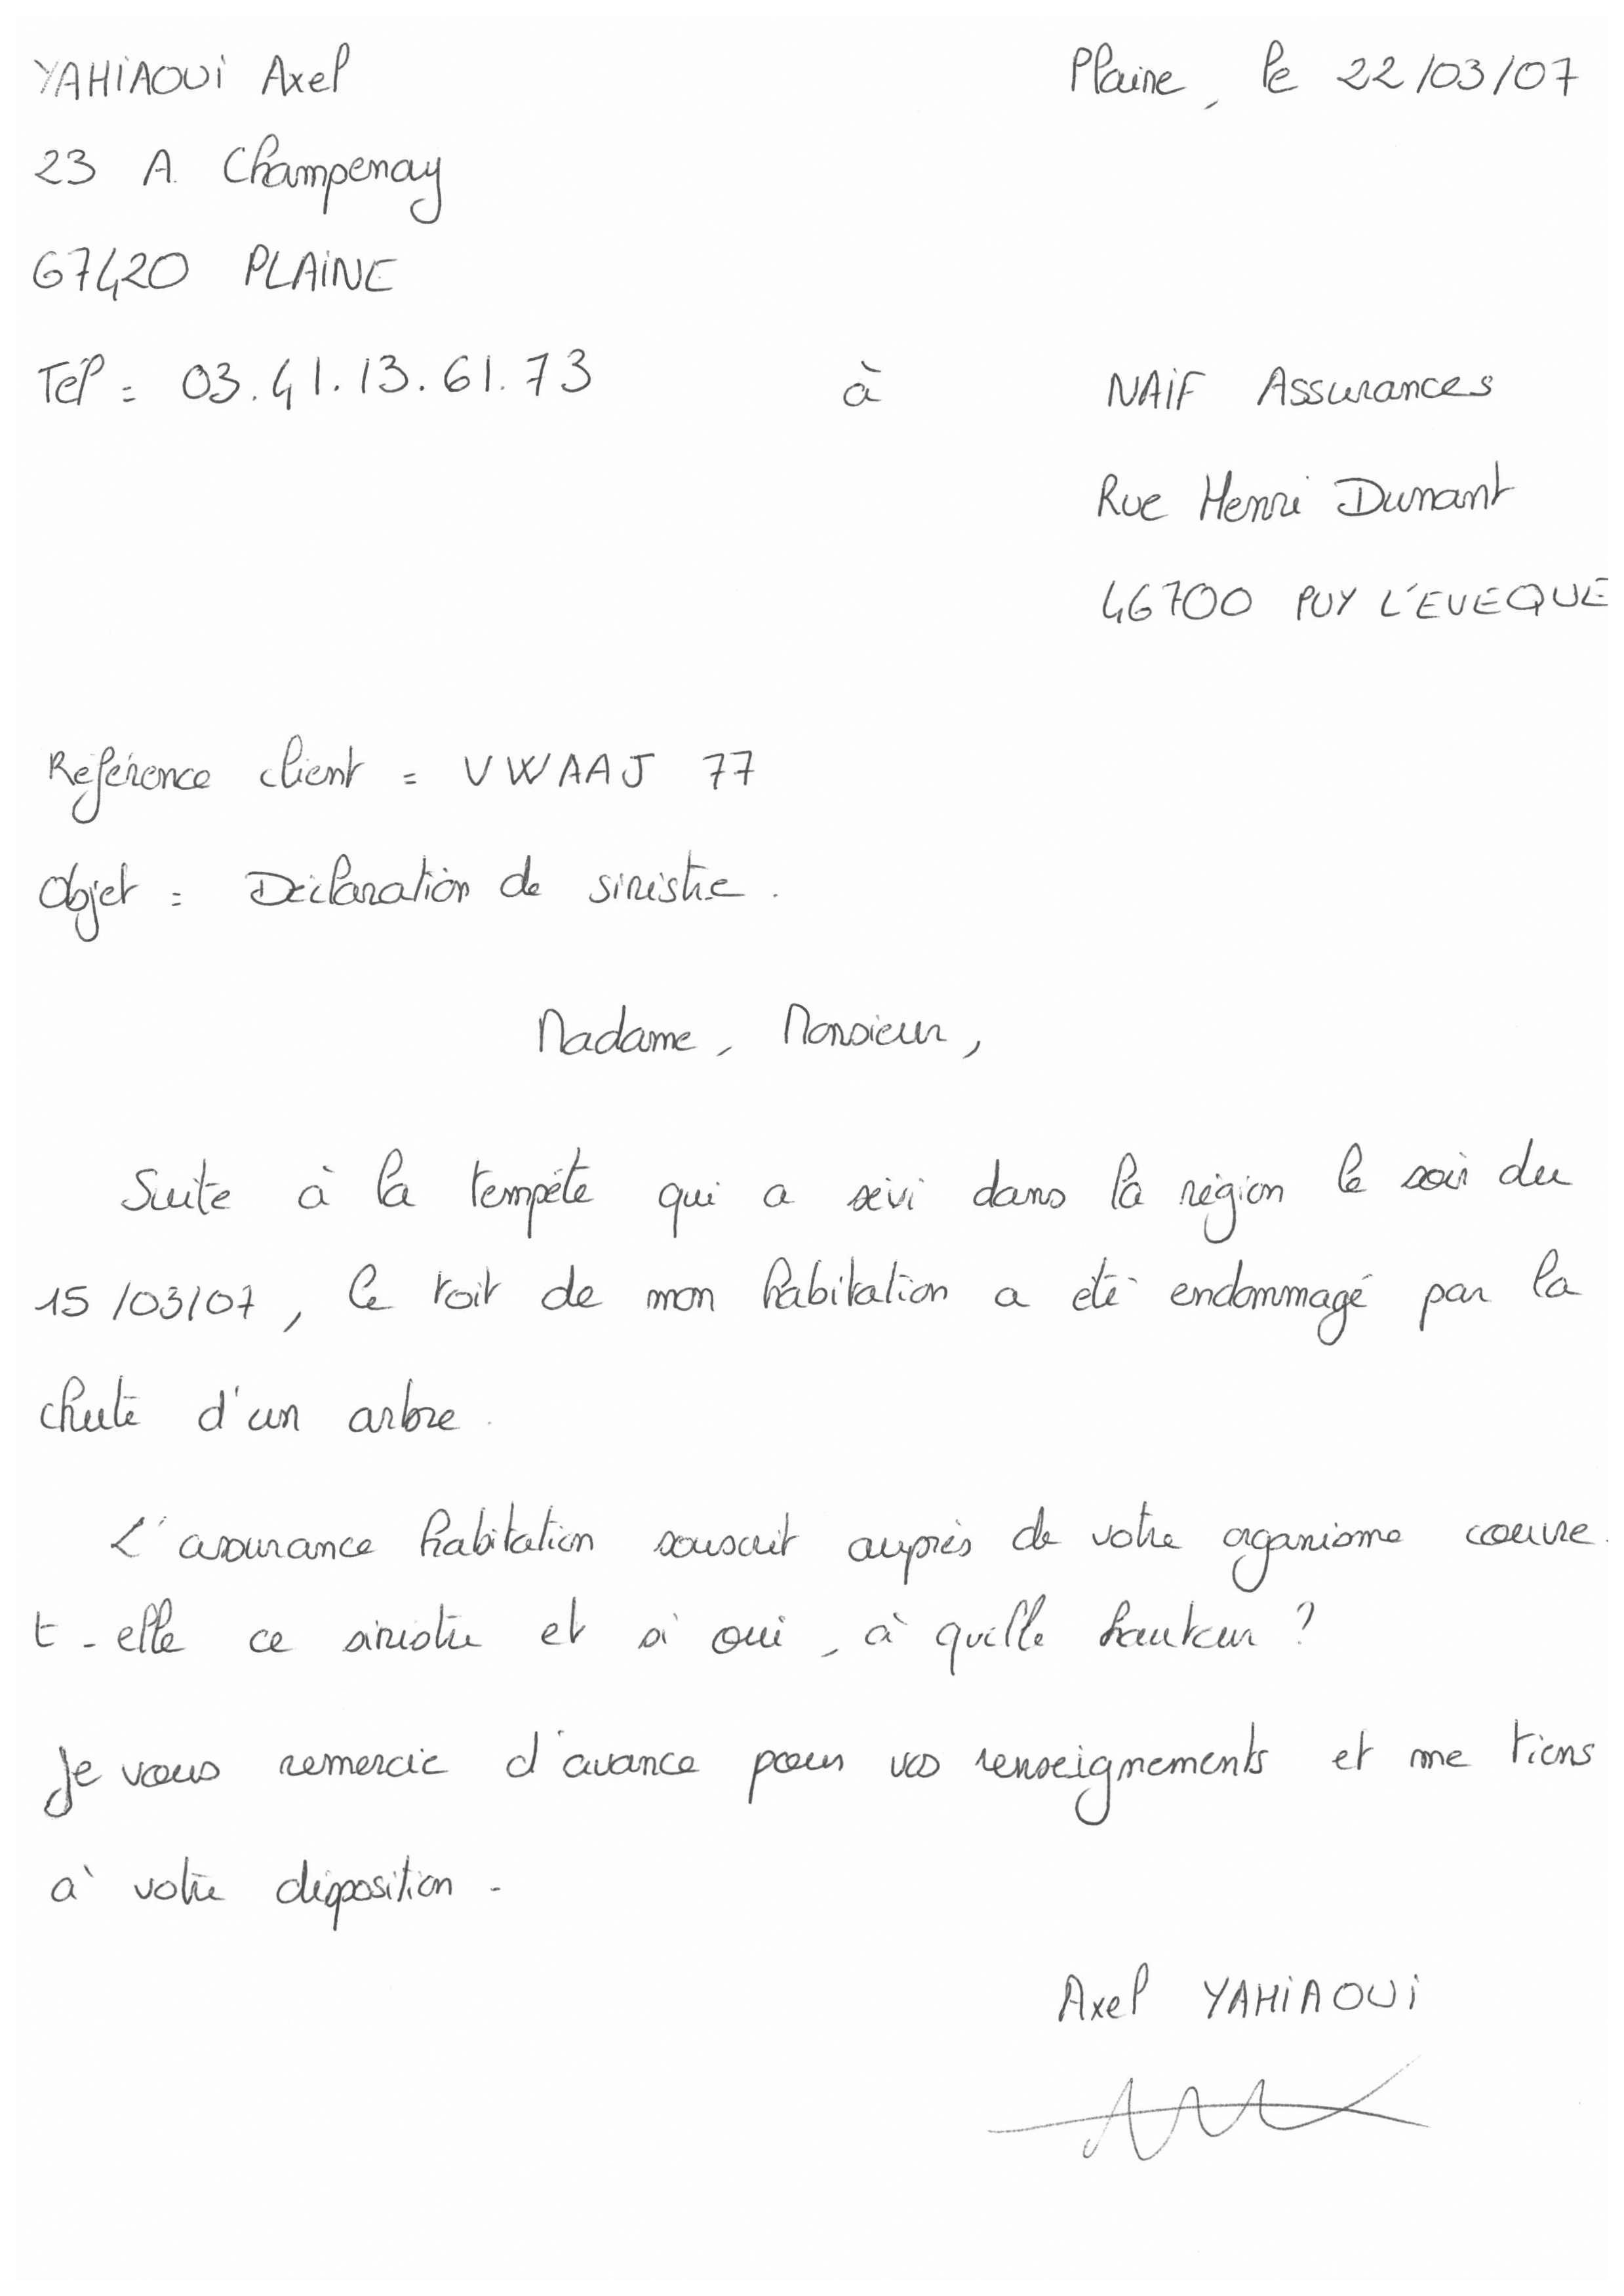 YAHIAOUI Axel
Plaine, le 22/03/07
23 A Champenay
67420 PLAINE
Tél : 03.41.13.61.73
à
NAIF Assurances
Rue Henri Dunant
46700 PUY L'EVEQUE
Référence client : VWAAJ 77
Objet : Déclaration de sinistre.
Madame, Monsieur,
Suite à la tempête qui a sévi dans la région le soir du
15/03/07, le toit de mon habitation a été endommagé par la
chute d'un arbre.
L'assurance habitation souscrit auprès de votre organisme couvre-
t-elle ce sinistre et si oui, à quelle hauteur ?
Je vous remercie d'avance pour vos renseignements et me tiens
à votre disposition.
Axel YAHIAOUI